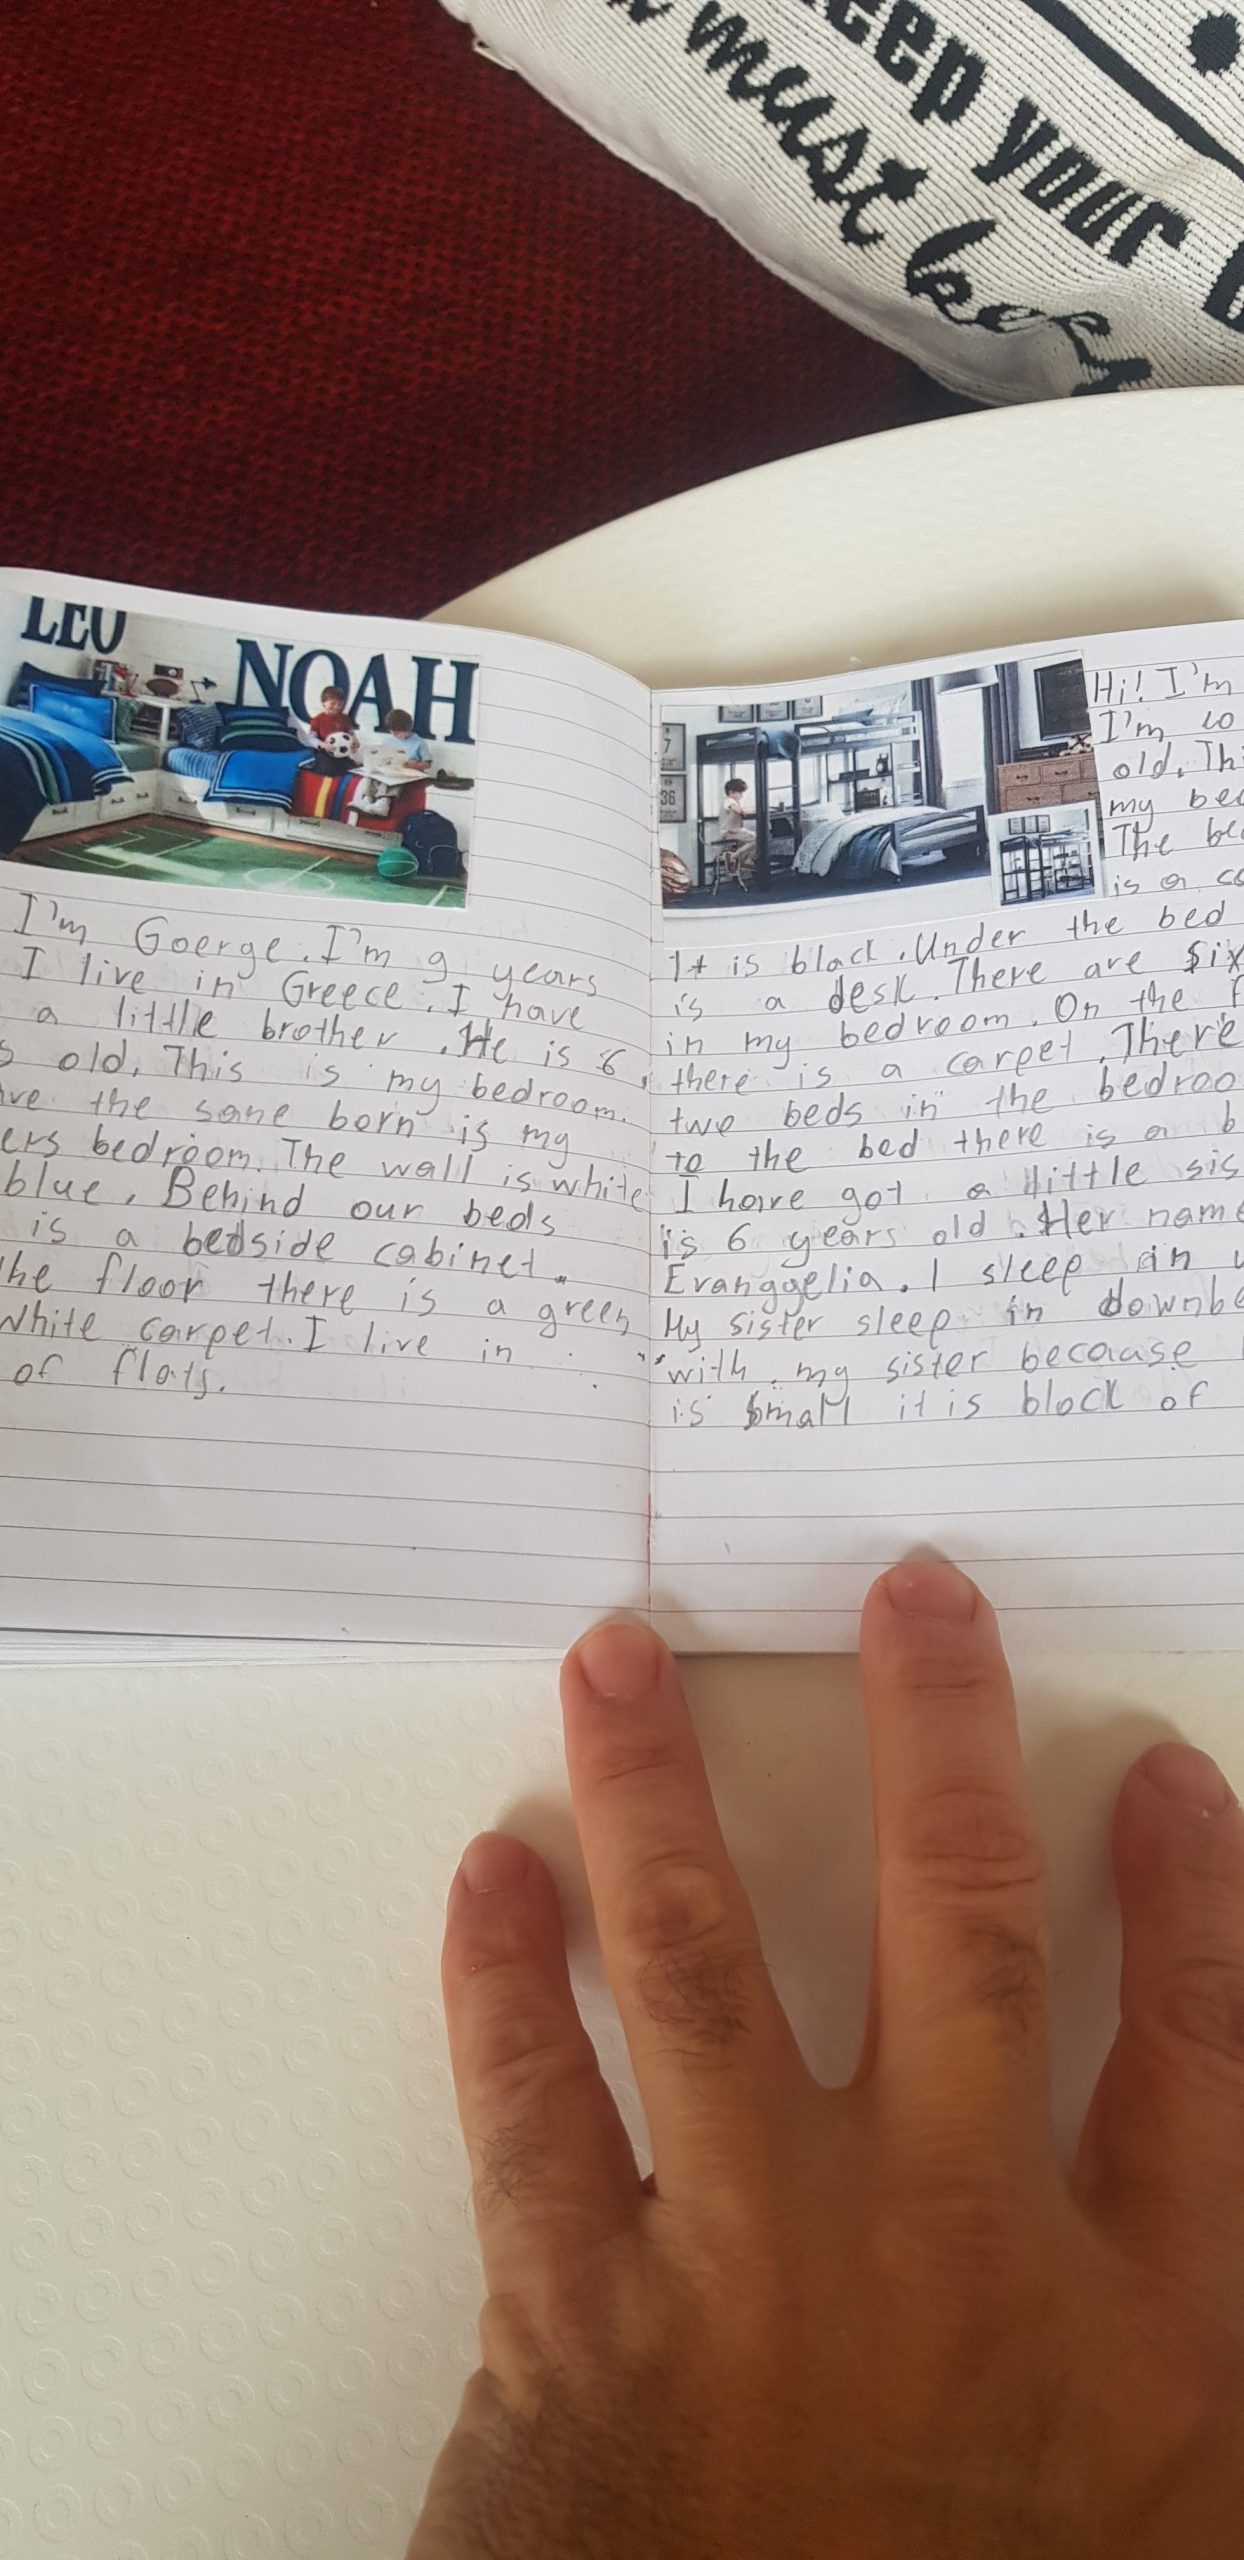 eep your
must be
LEO
NOAH
I'm Goerge. I'm 9 years
I live in Greece. I have
a little brother. He is 6
s old, This is my bedroom.
ve the sane born is my
ers bedroom. The wall is white
blue. Behind our beds
is a bedside cabinet.
he floor there is a green
White carpet. I live in
of flats.
7
36
Hi! I'm
I'm 10
old. Thi
my bed
The be
is a co
It is black. Under the bed
is a desk. There are six
in my bedroom. On the f
there is a carpet. There
two beds in the bedroo
to the bed there is a b
I have got a little sis
is 6 years old. Her name
Evanggelia. I sleep in u
My sister sleep in downbe
with my sister because
is small it is block of